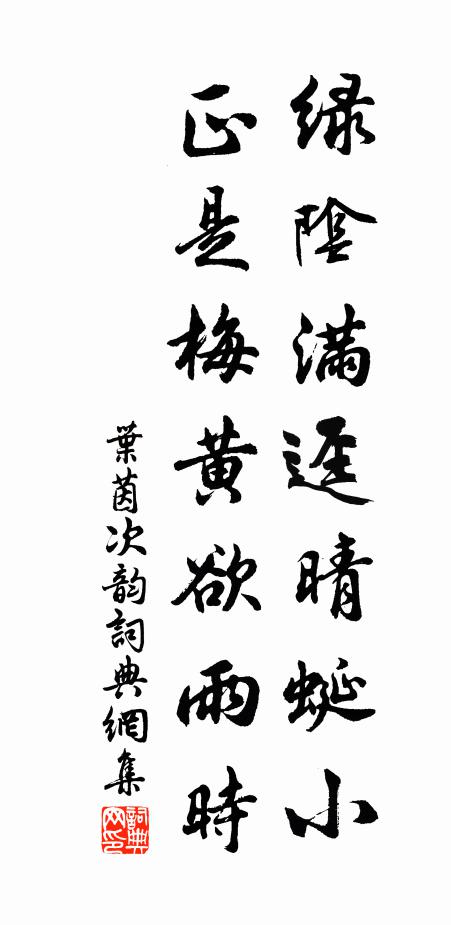 綠陰滿逕晴蜒小
正是梅黃欲雨時
葉茵次韵詞典網集
詞典网印